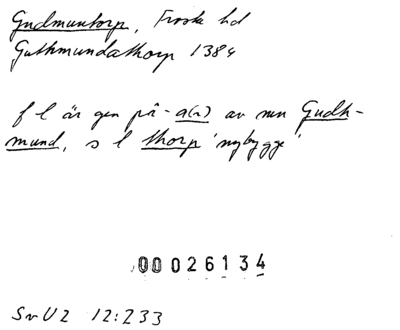 Gudmuntorp, Frosta hd
Guthmundathorp 1384
f l är gen på -a(r) av mn Gudh-
mund, s l thorp 'nybygge'
00026134
SvU2 12:233